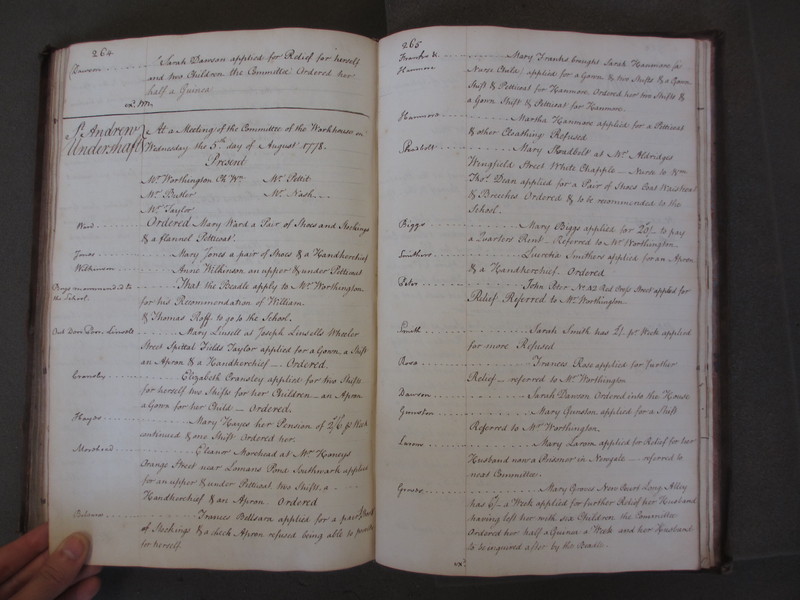 264
Dawson Sarah Dawson applied for Relief for herself
and two Children the Committee Ordered her
half a Guinea
St Andrew Undershaft At a Meeting of the Committee of the Workhouse on
Wednesday the 5th day of August 1778.
Present
Mr Worthington Ch Wn Mr Pettit
Mr Butler Mr Nash
Mr Taylor
Ward Ordered Mary Ward a Pair of Shoes and Stockings
& a flannel Petticoat.
Jones Mary Jones a pair of Shoes & a Handkerchief
Wilkinson Anne Wilkinson an upper & under Petticoat
Boys recommended to the School. That the Beadle apply to Mr Worthington
for his Recommendation of William
& Thomas Roff to go to the School.
Out Door Poor Linsell Mary Linsell at Joseph Linsells Wheeler
Street Spittal Fields Taylor applied for a Gown, a Shift
an Apron & a Handkerchief — Ordered.
Cransley Elizabeth Cransley applied for two Shifts
for herself two Shifts for her Children — an Apron
a Gown for her Child — Ordered.
Hayes Mary Hayes her Pension of 2/6 p Week
continued & one Shift Ordered her.
Morehead Eleanor Morehead at Mr Haneys
Orange Street near Lomans Pond Southwark applied
for an upper & under Petticoat two Shifts, a
Handkerchief & an Apron Ordered
Frances Bellsarn applied for a pair of
of Stockings & a check Apron refused being able to provide
for herself.
265
Franks & Mary Franks brought Sarah Hanmore (a
Hanmore Nurse Child) applied for a Gown & two Shifts & a Gown
Shift & Petticoat for Hanmore. Ordered her two Shifts &
a Gown Shift & Petticoat for Hanmore.
Hanmore Martha Hanmore applied for a Petticoat
& other Cloathing Refused
Mary Roadbelt at Mr Aldridges
Wingfield Street White Chapple — Nurse to Wm
Thos Dean applied for a Pair of Shoes Coat Waistcoat
& Breeches Ordered & to be recommended to the
School.
Biggs Mary Biggs applied for 20/- to pay
a Quarters Rent — Referred to Mr Worthington.
Smithers Lucretia Smithers applied for an Apron
& a Handkerchief — Ordered
Peter John Peter No 42 Red Cross Street applied for
Relief Referred to Mr Worthington.
Smith Sarah Smith has 2/- p Week applied
for more Refused
Ross Frances Ross applied for further
Relief — referred to Mr Worthington
Dawson Sarah Dawson Ordered into the House
Gunston Mary Gunston applied for a Shift
Referred to Mr Worthington.
Larom Mary Larom applied for Relief for her
Husband now a Prisoner in Newgate — referred to
next Committee.
Groves Mary Groves New Court Long Alley
has 6/- a Week applied for further Relief her Husband
having left her with six Children the Committee
Ordered her half a Guinea a Week and her Husband
to be enquired after by the Beadle.
exd